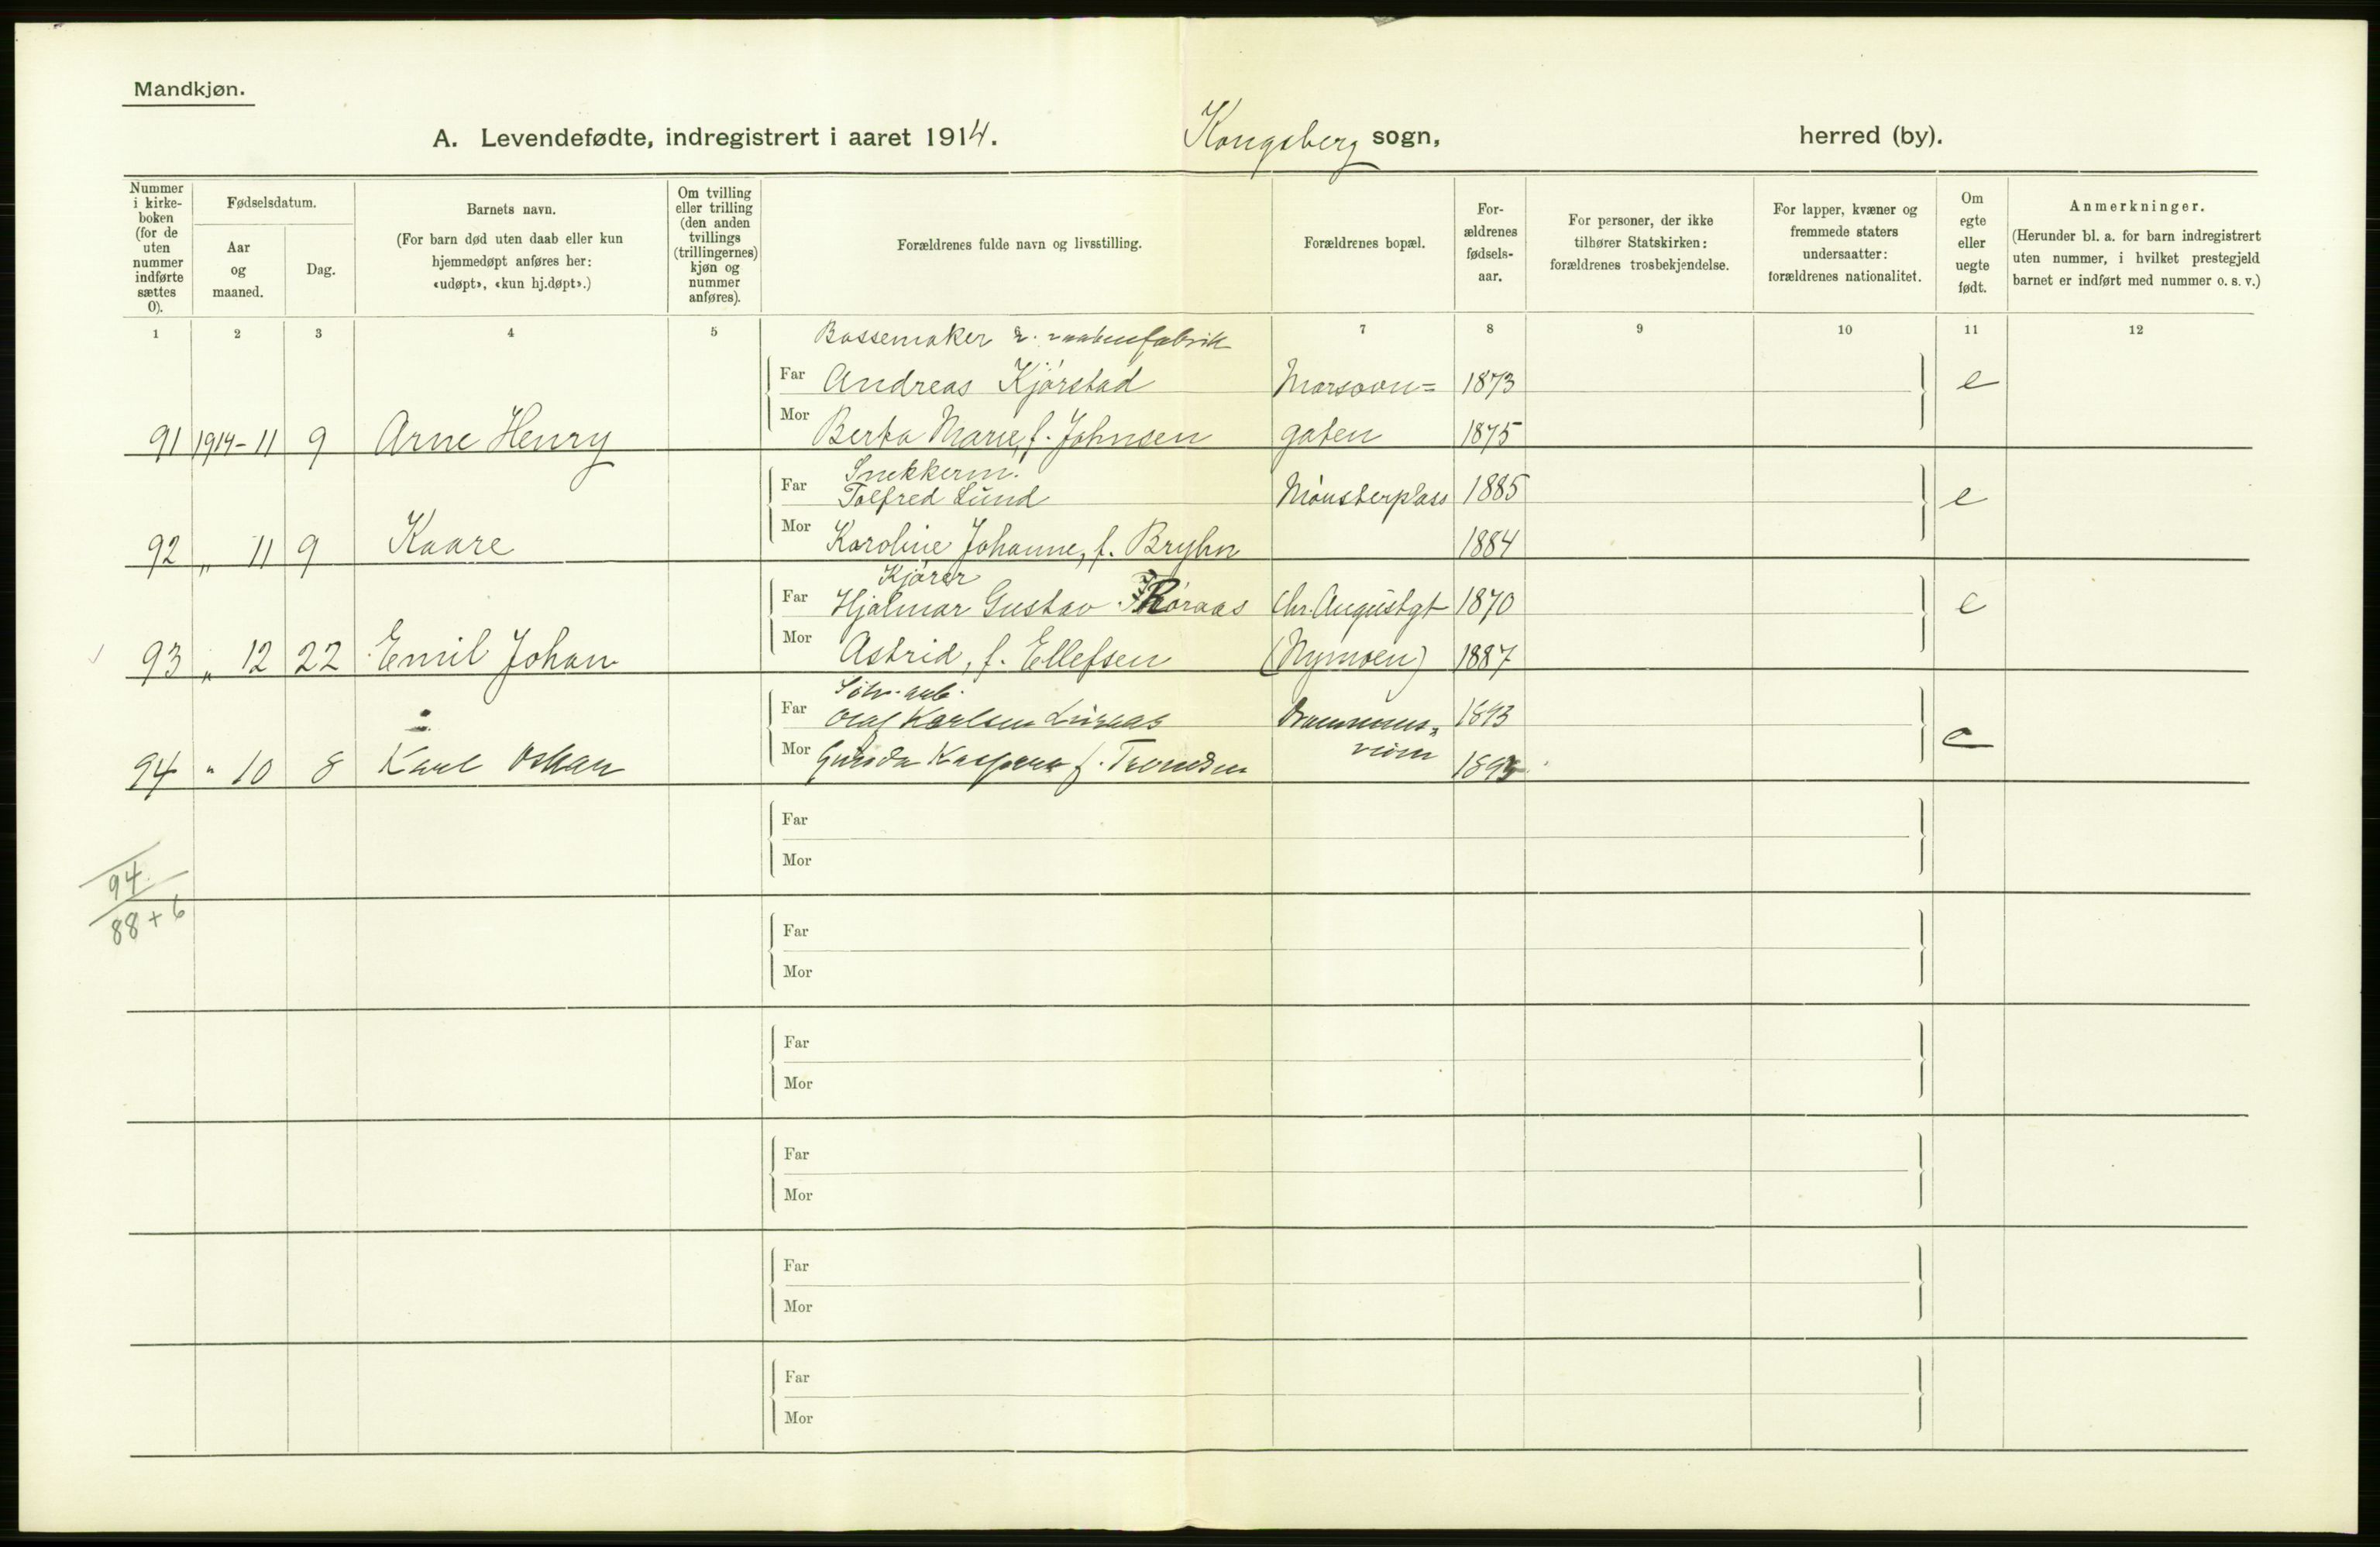 Mandkjøn.
A. Levendefødte, indregistrert i aaret 1914. Kongsberg sogn, herred (by).
Nummer i kirke-boken (for de uten nummer indførte sættes 0).
Fødselsdatum.
Aar og maaned.
Dag.
Barnets navn.
(For barn død uten daab eller kun
hjemmedøpt anføres her:
«udøpt», «kun hj.døpt».)
Om tvilling
eller trilling
(den anden
tvillings
(trillingernes)
kjøn og
nummer
anføres).
Forældrenes fulde navn og livsstilling.
Forældrenes bopæl.
For-
ældrenes
fødsels-
aar.
For personer, der ikke
tilhører Statskirken:
forældrenes trosbekjendelse.
For lapper, kvæner og
fremmede staters
undersaatter:
forældrenes nationalitet.
Om
egte
eller
uegte
født.
Anmerkninger.
(Herunder bl. a. for barn indregistrert
uten nummer, i hvilket prestegjeld
barnet er indført med nummer o. s. v.)
1 2 3 4 5 7 8 9 10 11 12
Bøssemaker v. vaabenfabrik
Far Andreas Kjørstad 1873 e
91 1914-11 9 Arne Henry Mor Berta Marie, f. Johnsen gaten 1875
Snekkerm.
Far Tolfred Lund Mønsterplass 1885 e
92 „ 11 9 Kaare Mor Karoline Johanne, f. Bryhn 1884
Kjører
Far Hjalmar Gustav Røraas Chr. Augustgt 1870 e
93 „ 12 22 Emil Johan Mor Astrid, f. Ellefsen (Nymoen) 1887
Sølv. arb.
Far Olaf Karlsen Drammens- 1893 e
94 „ 10 8 Karl Oskar Mor f. veien
Far
Mor
94
88 + 6
Far
Mor
Far
Mor
Far
Mor
Far
Mor
Far
Mor